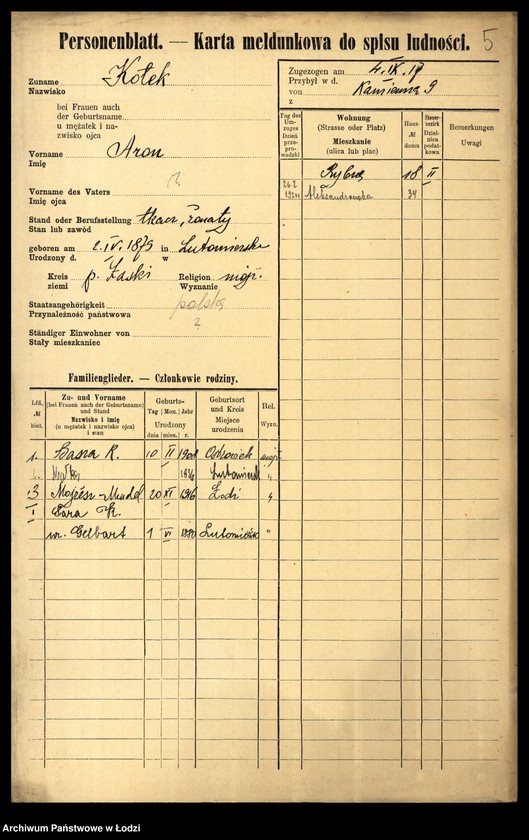 Personenblatt. — Karta meldunkowa do spisu ludności. 5
Zuname
Nazwisko
Kołek
bei Frauen auch
der Geburtsname
u mężatek i na-
zwisko ojca
Vorname
Imię
Aron
Vorname des Vaters
Imię ojca
?
Stand oder Berufsstellung
Stan lub zawód
tkacz, żonaty
geboren am 2. IV. 1879 in Lutomiersku
Urodzony d. w
Kreis p. Łaski Religion mojż.
ziemi Wyznanie
Staatsangehörigkeit
Przynależność państwowa
polska
?
Ständiger Einwohner von
Stały mieszkaniec
Zugezogen am 4. IX. 17
Przybył w d.
von Kamienna 9
z
Tag des Um-zuges
Dzień prze-prowadzki
Wohnung
(Strasse oder Platz)
Mieszkanie
(ulica lub plac)
Haus-
№
domu
Steuer-
bezirk
Dziel-
nica
podat-
kowa
Bemerkungen
Uwagi
Rybna 18 II
Aleksandrowska 34
Familienglieder. — Członkowie rodziny.
Lfd.
№
bież.
Zu- und Vorname
(bei Frauen auch der Geburtsname)
und Stand
Nazwisko i imię
(u mężatek i nazwisko ojca)
i stan
Geburts-
Tag Mon. Jahr
Urodzony
dnia mies. r.
Geburtsort
und Kreis
Miejsce
urodzenia
Rel.
Wyzn.
1. Basza K. 10 II 1908 mojż.
1936 Lutomiersk "
3 Mojżesz-Mendel 20 XI 1916 Łodzi "
I Sara K.
ur. Gelbart 1 VI 1880 Lutomiersk "
Archiwum Państwowe w Łodzi